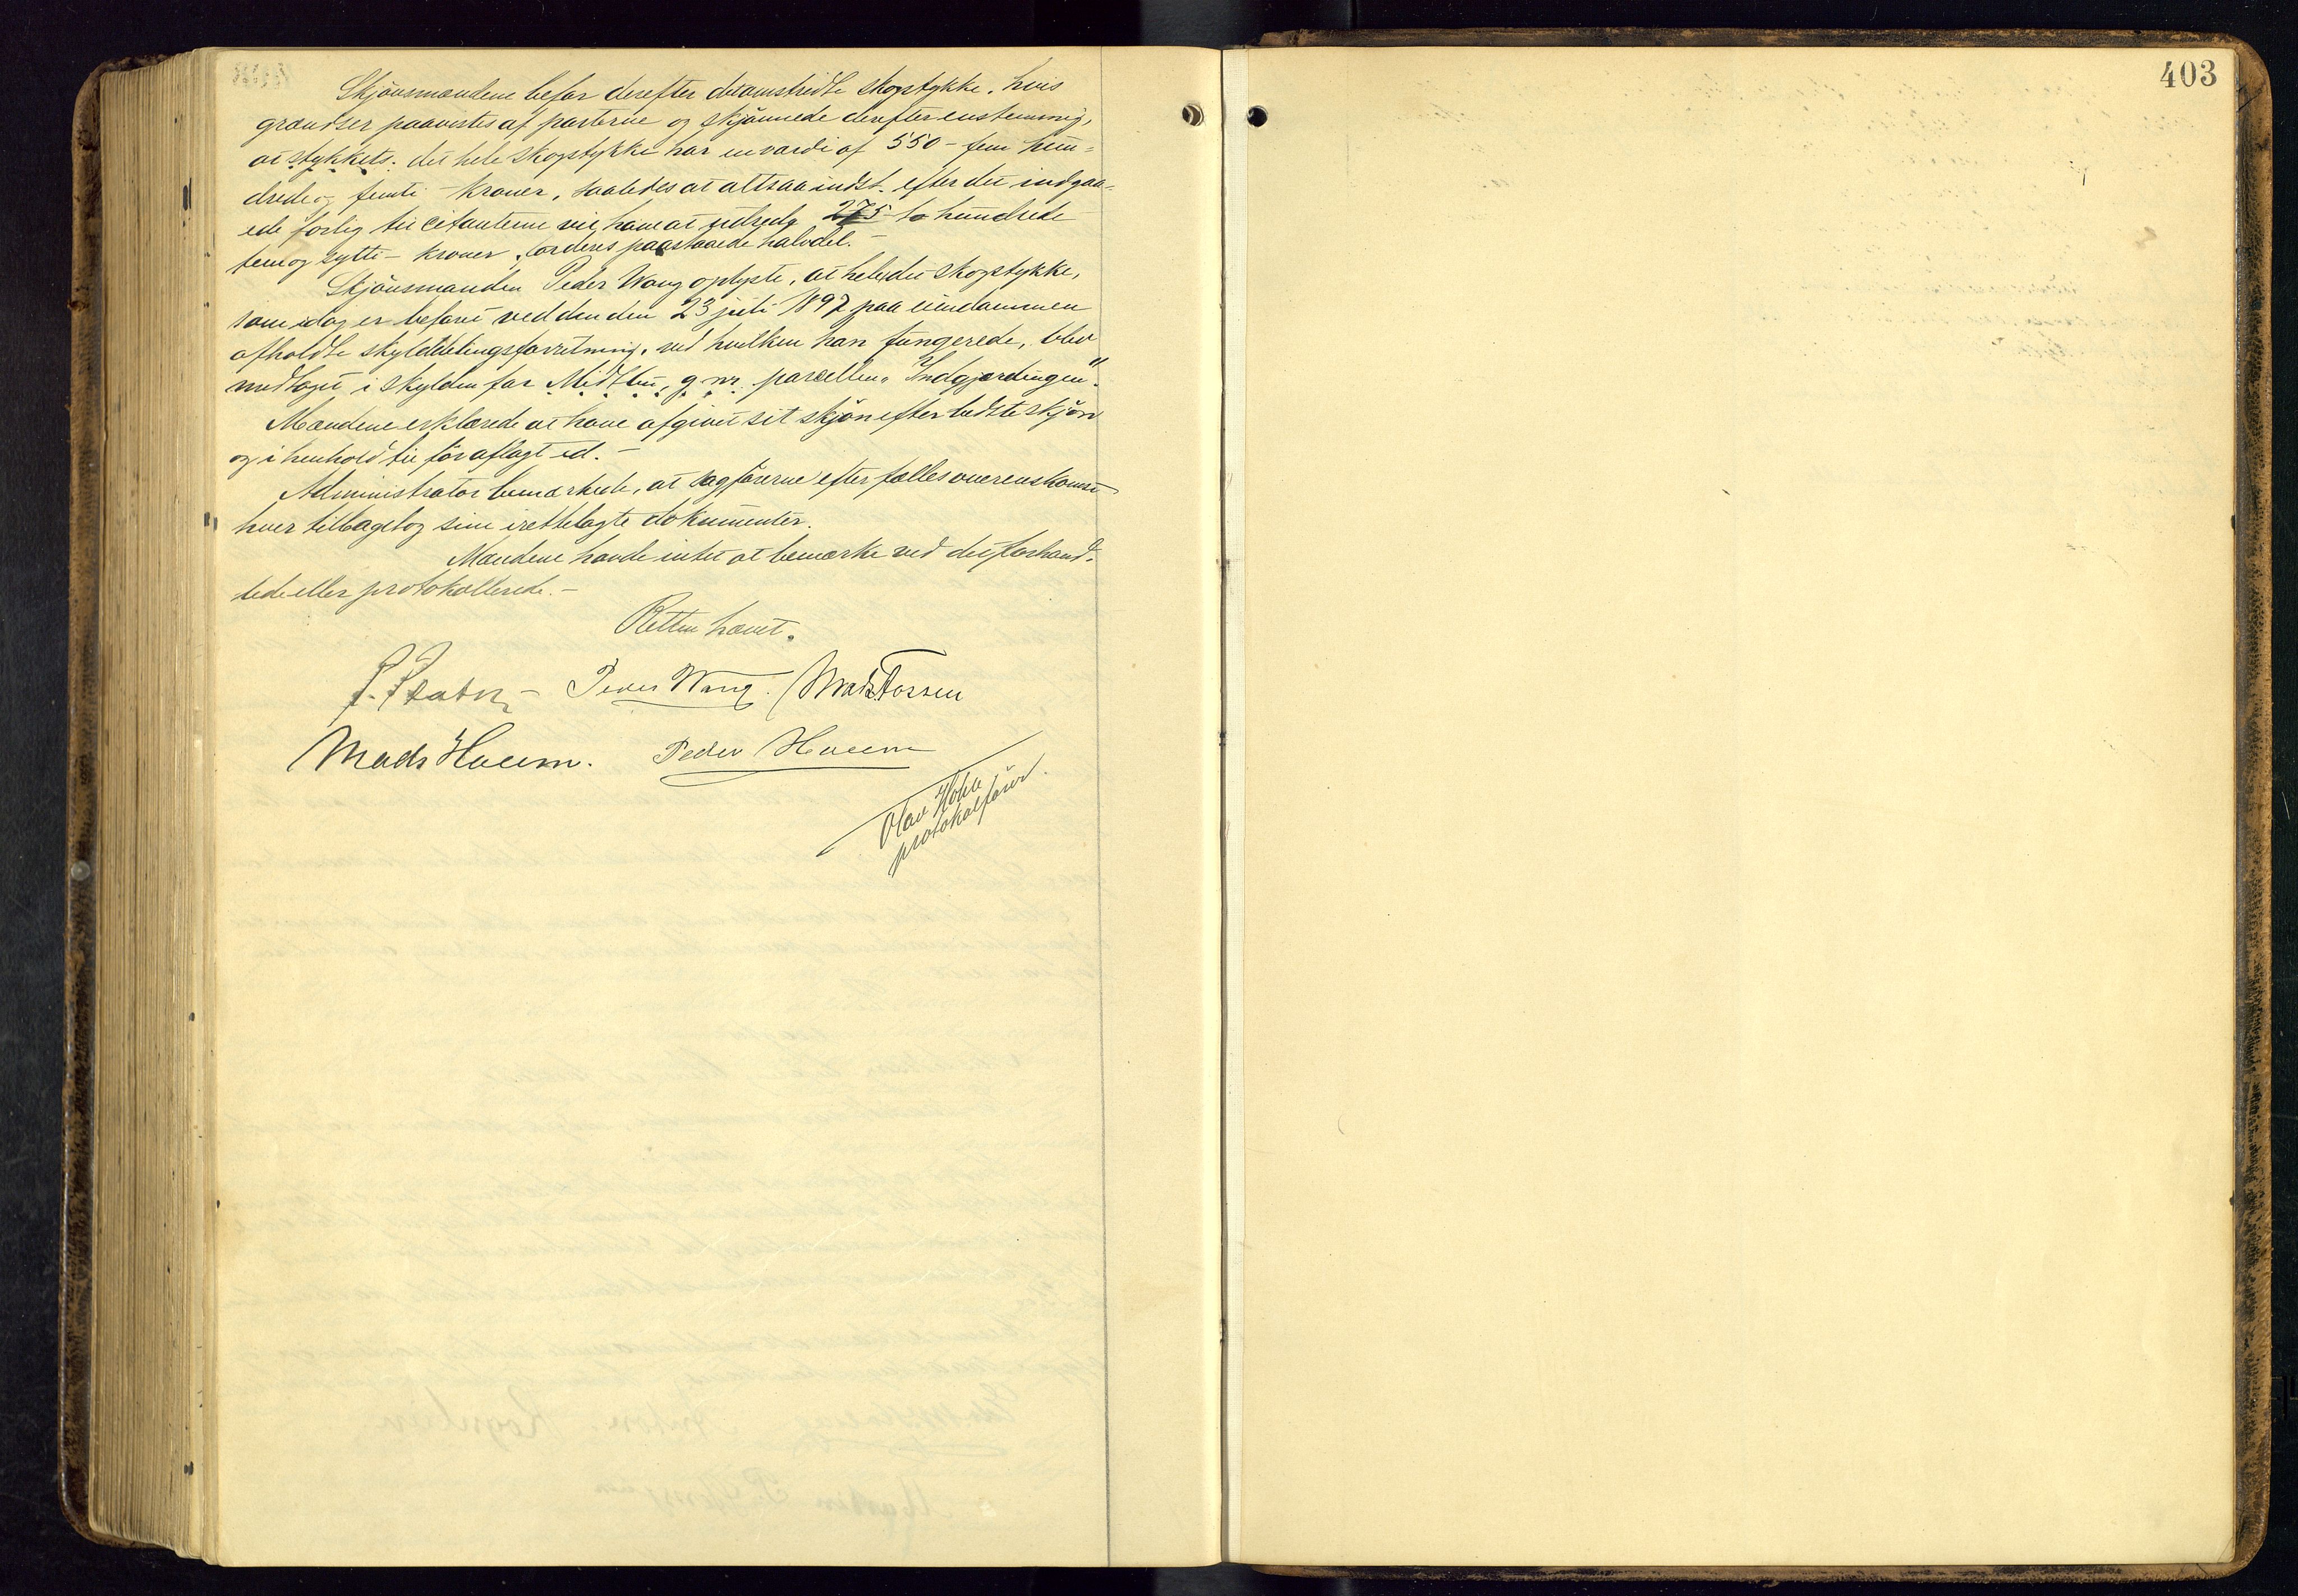 Skjönsmændene befor derefter det omstridte skogstykke, hvis
grændser paavistes af parterne og skjønnede derefter enstemmig,
at stykkets. det hele skogstykke har en værdi af 550 - fem hun-
drede og femti - kroner, saaledes at altsaa indst. efter det indgaa-
ede forlig til citanterne vil have at udrede 275 - to hundrede
fem og sytti - kroner, for deres paastaaede halvdel. -
Skjönsmanden Peder Wang oplyste, at hele det skogstykke,
som idag er befaret ved den den 23 juli 1897 paa eiendommen
afholdte skylddelingsforretning, ved hvilken han fungerede, blev
medtaget i skylden for Midttun, g. nr. parcellen „Indgjerdingen".
Mændene erklærede at have afgivet sit skjön efter bedste skjön
og i henhold til før aflagt ed. -
Administrator bemærkede, at sagførerne efter fælles overenskomst
hver tilbagetog sine irettelagte dokumenter.
Mændene havde intet at bemærke ved det forhand-
lede eller protokollerede. -
Retten hævet.
Peder Wang. Mads Fossen
Mads Haum. Peder Haum
Olav
protokolfører.
403